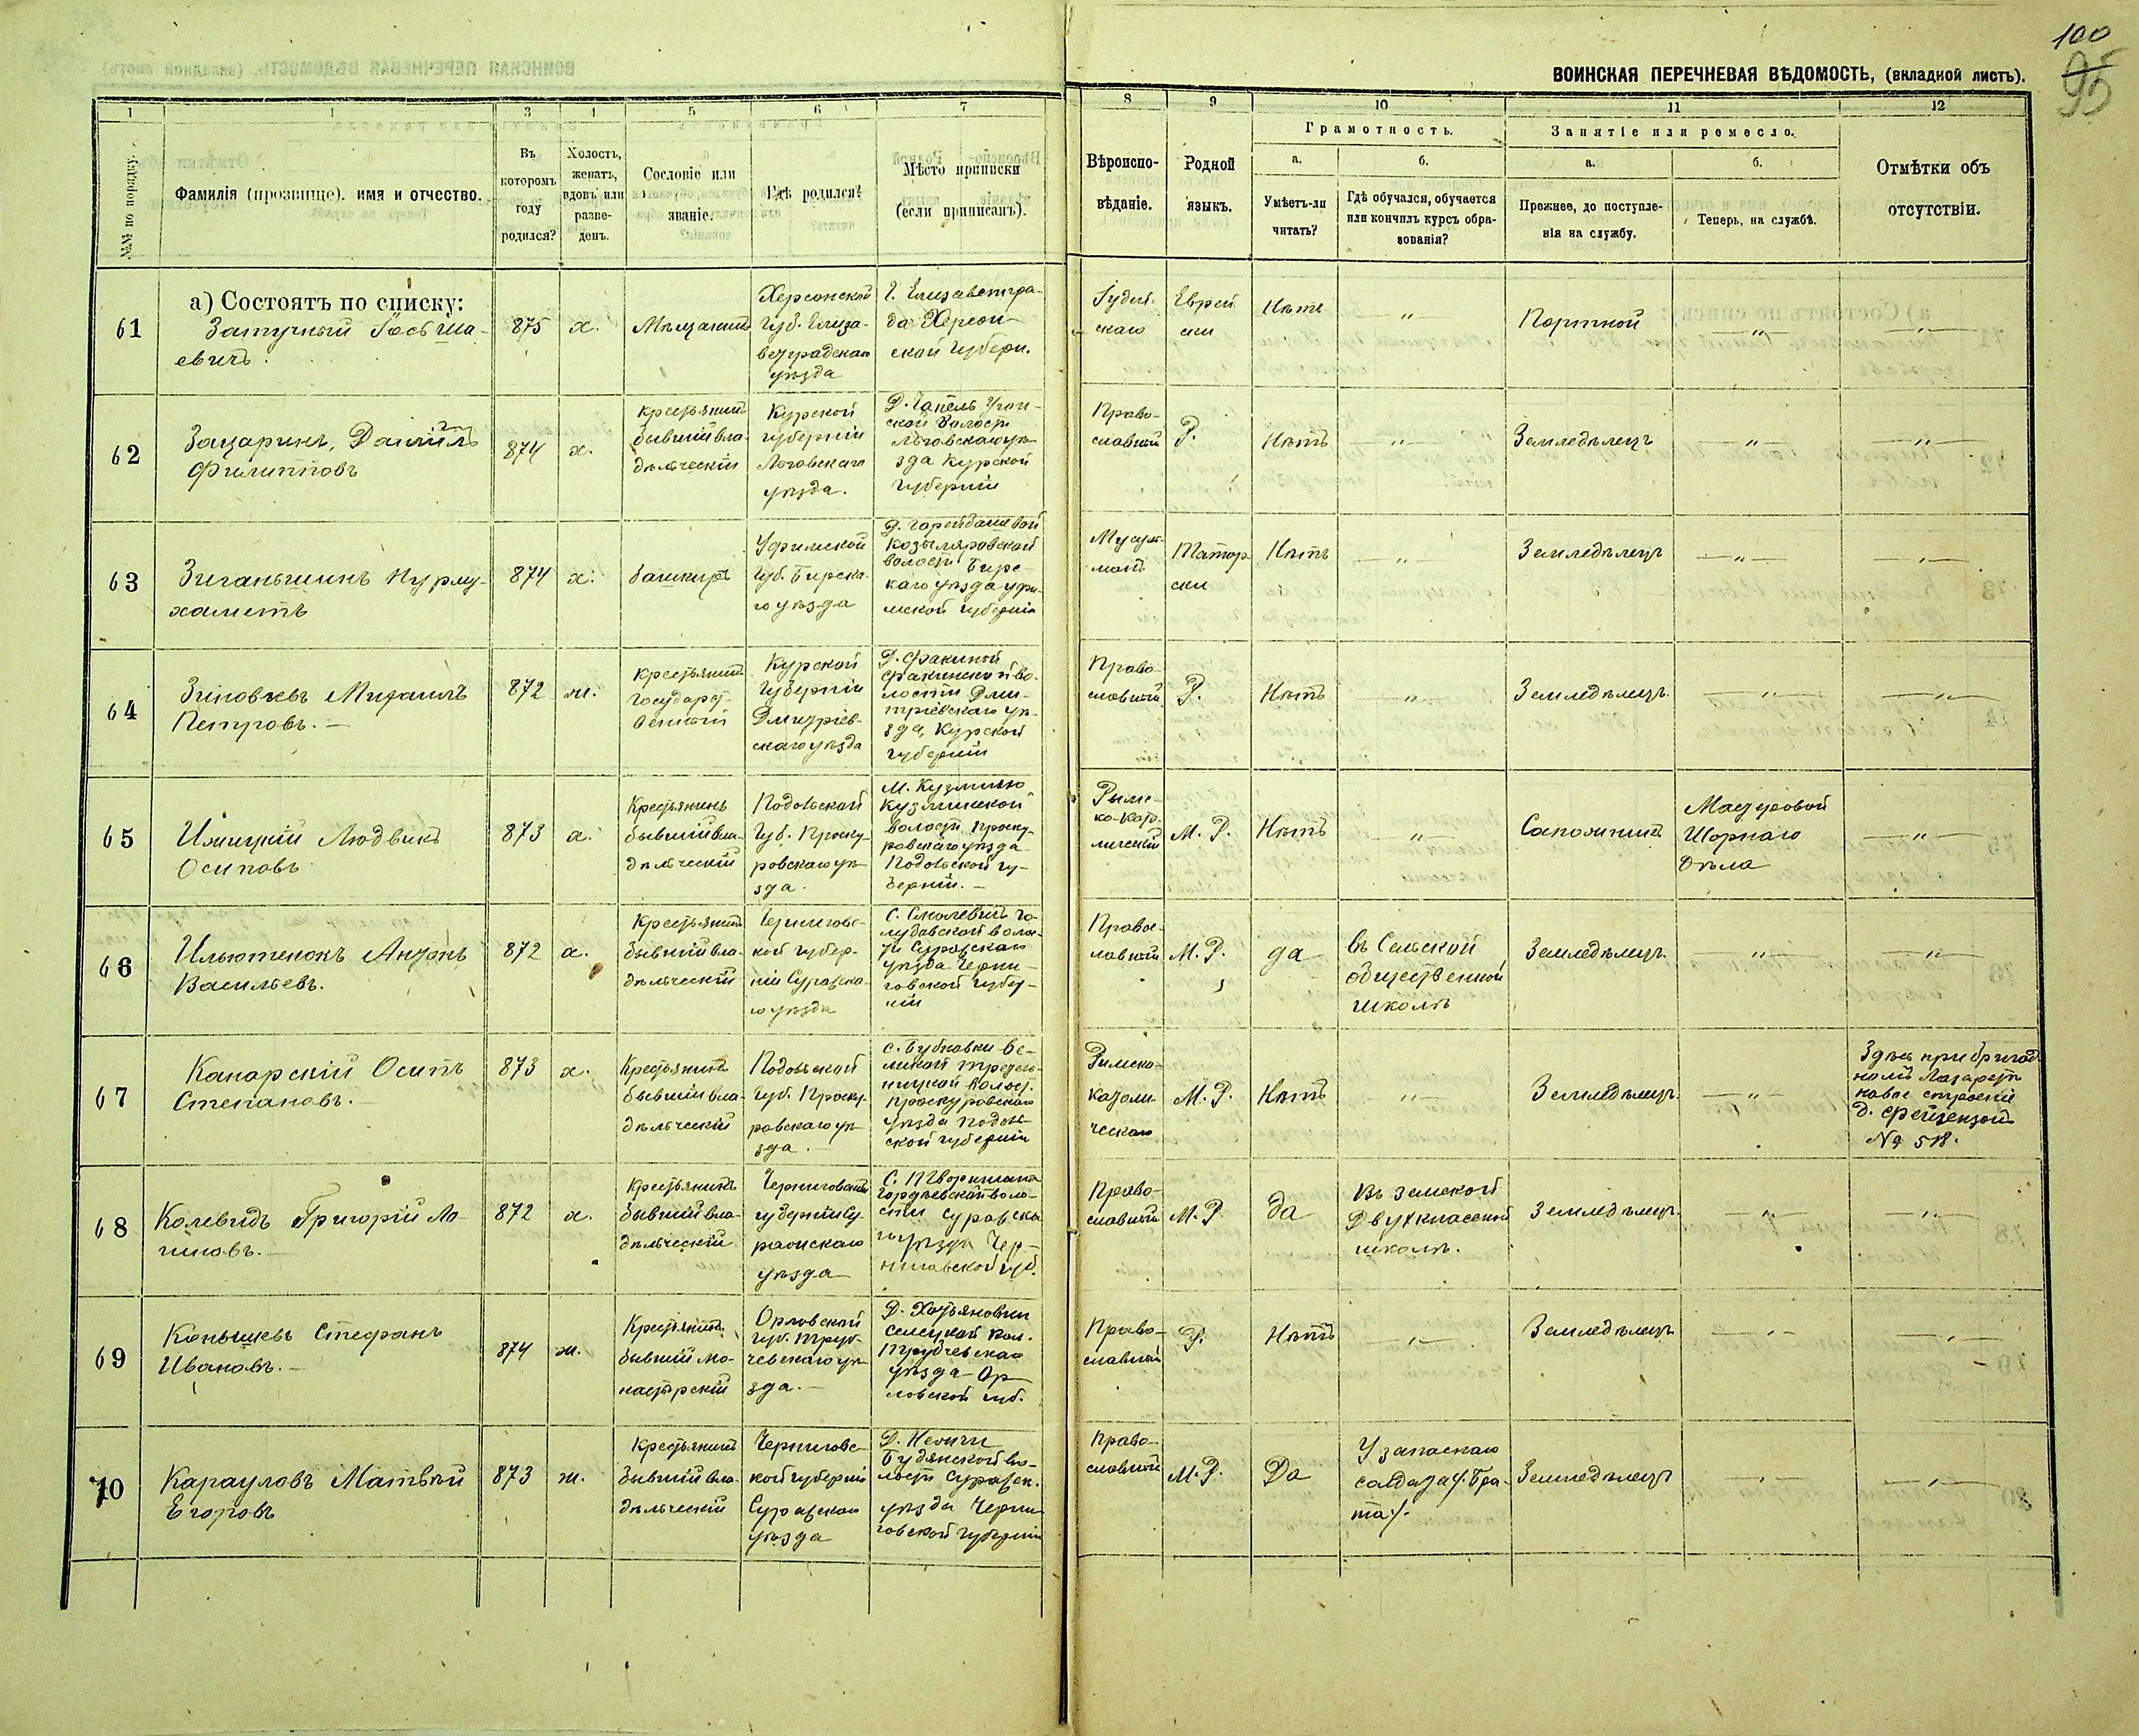 100
95
ВОИНСКАЯ ПЕРЕЧНЕВАЯ ВѢДОМОСТЬ, (вкладной листъ).
1 1 3 4 5 6 7 8 9 10 11 12
№№ по порядку.
Фамилія (прозвище), имя и отчество.
Въ которомъ году родился?
Холостъ, женатъ, вдовъ или разведенъ.
Сословіе или званіе.
Гдѣ родился?
Мѣсто приписки (если приписанъ).
Вѣроисповѣданіе.
Родной языкъ.
Грамотность.
а.
Умѣетъ-ли читать?
б.
Гдѣ обучался, обучается или кончилъ курсъ образованія?
Занятіе или ремесло.
а.
Прежнее, до поступленія на службу.
б.
Теперь, на службѣ.
Отмѣтки объ отсутствіи.
а) Состоятъ по списку:
61
875
х.
Херсонской
Губ. Елиза-
ветградскаго
уѣзда
Г. Елисаветгра-
да Херсон-
ской Губерн.
Іудей-
скаго
Еврей
ски
Нѣтъ
— „ —
Портной
— „ —
— „ —
62
Филипповъ
874
х.
Крестьянинъ
бывшій вла-
дѣльческій
Курской
Губерніи
Льговскаго
уѣзда.
Льговскаго уѣ-
зда Курской
Губерніи
Право-
славный
Р.
Нѣтъ
— „ —
Земледѣлецъ
— „ —
— „ —
63
Зиганьшинъ Нурму-
хаметъ
874
х.
башкиръ
Уфимской
Губ. Бирска-
го уѣзда
волости Бирс-
каго уѣзда Уфи-
мской Губерніи
Мусуль-
манъ
Татар
ски
Нѣтъ
— „ —
Земледѣлецъ
— „ —
— „ —
64
Зиновьевъ Михаилъ
Петровъ. —
872
ж.
Крестьянинъ
Государст-
венный
Курской
Губерніи
Дмитріев-
скаго уѣзда
Д. Фокиной
Фокинской во-
лости Дми-
тріевскаго уѣ-
зда, Курской
Губерніи
Право-
славный
Р.
Нѣтъ
— „ —
Земледѣлецъ.
— „ —
— „ —
65
Людвикъ
Осиповъ
873
х.
Крестьянинъ
бывшій вла-
дѣльческій
Подольской
Губ. Проску-
ровскаго уѣ-
зда.
М. Кузмино
Кузминской
волости Проску-
ровскаго уѣзда
Подольской гу-
берніи. —
Римс-
ко-кат-
лический
М. Р.
Нѣтъ
— „ —
Сапожникъ
Мастеровой
Шорнаго
дѣла
— „ —
66
Ильютенокъ Антонъ
Васильевъ.
872
х.
Крестьянинъ
бывшій вла-
дѣльческій
Черниговс-
кой губер-
ніи Суражска-
го уѣзда
ти Суражскаго
уѣзда Черни-
говской Губер-
ніи
Правос-
лавный
М. Р.
да
въ Сельской
общественной
школѣ
Земледѣлецъ.
— „ —
— „ —
67
Канарскій Осипъ
Степановъ. —
873
х.
Крестьянинъ
бывшій вла-
дѣльческій
Подольской
Губ. Проску-
ровскаго уѣ-
зда. —
Проскуровскаго
уѣзда Подоль-
ской Губерніи
Римско-
католи-
ческаго
М. Р.
Нѣтъ
— „ —
Земледѣлецъ.
— „ —
Здѣсь при бригад-
номъ Лазаретѣ
новое строеніе
№ 518.
68
Колевидъ Григорій Ло-
гиновъ. —
872
х.
Крестьянинъ
бывшій вла-
дѣльческій
Черниговской
губерніи Су-
ражскаго
уѣзда
Гордѣевской воло-
сти Суражска
го уѣзда Чер-
ниговской губ.
Право-
славный
М. Р.
Да
Въ земской
Двухклассной
школѣ.
Земледѣлецъ.
— „ —
— „ —
69
Стефанъ
Ивановъ. —
874
ж.
Крестьянинъ
бывшій мо-
настырскій
Орловской
Губ. Труб-
чевскаго уѣ-
зда. —
Д. Хотьяновки
Селецкой Вол.
Трубчевскаго
уѣзда Ор-
ловской губ.
Право-
славный
Р.
Нѣтъ
— „ —
Земледѣлецъ
— „ —
— „ —
70
Карауловъ Матвѣй
Егоровъ
873
ж.
Крестьянинъ
бывшій вла-
дѣльческій
Черниговс-
кой губерніи
Суражскаго
уѣзда
лости Суражск.
уѣзда Черни-
говской Губерніи
Право-
славный
М. Р.
Да
У запаснаго
солдата /: Бра-
та :/.
Земледѣлецъ
— „ —
— „ —